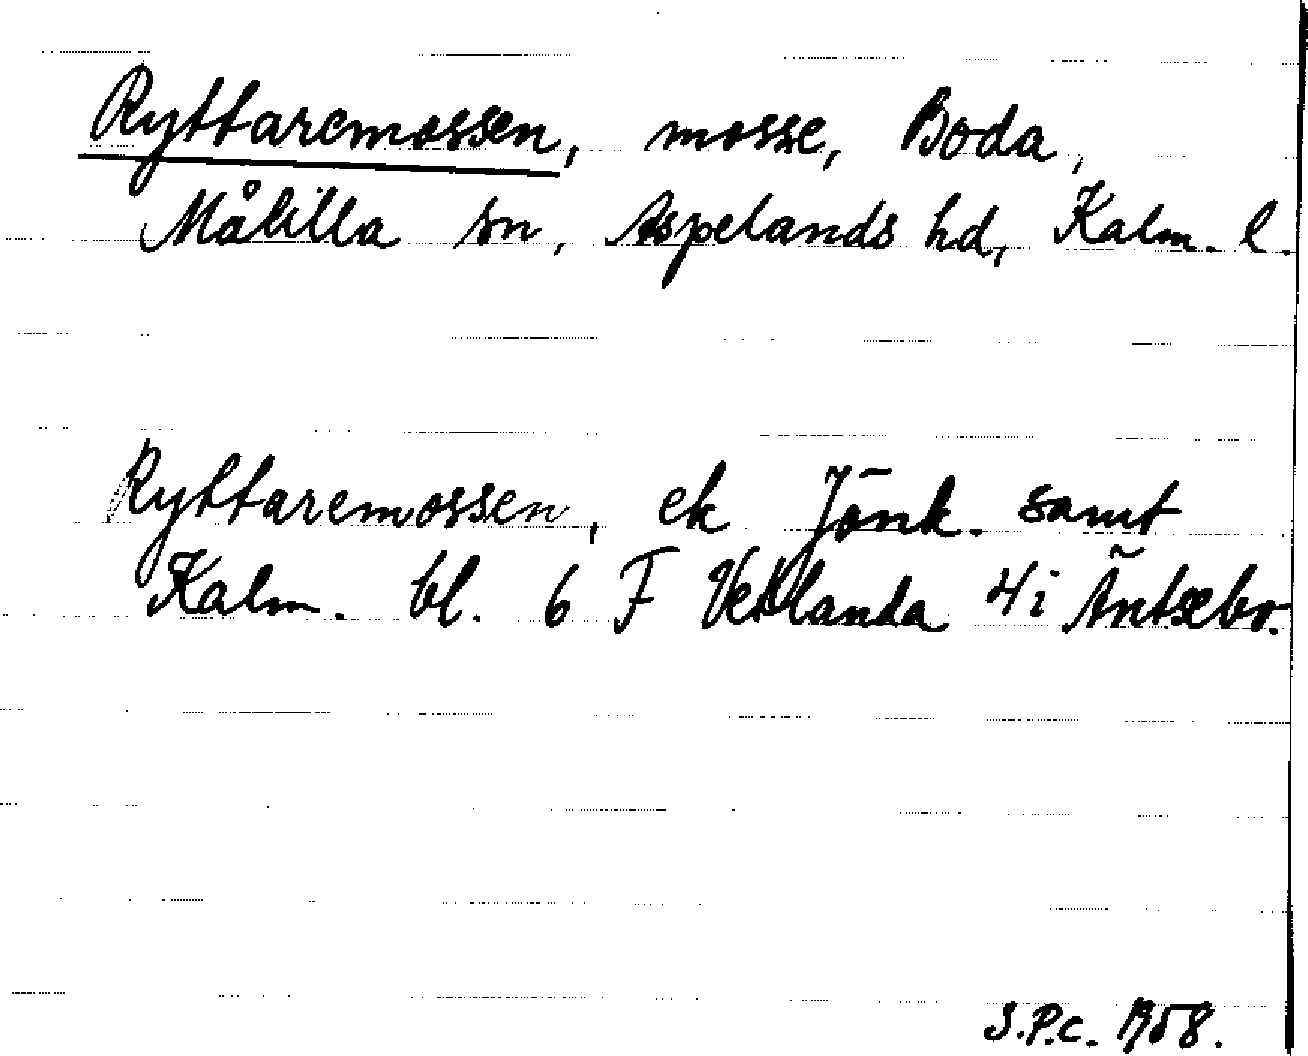 Ryttaremossen, mosse, Boda,
Målilla sn, Aspelands hd, Kalm. l.
Ryttaremossen, ek Jönk. samt
Kalm. bl. 6 F Vetlanda 4i Äntsebo.
S.P.C. 1958.